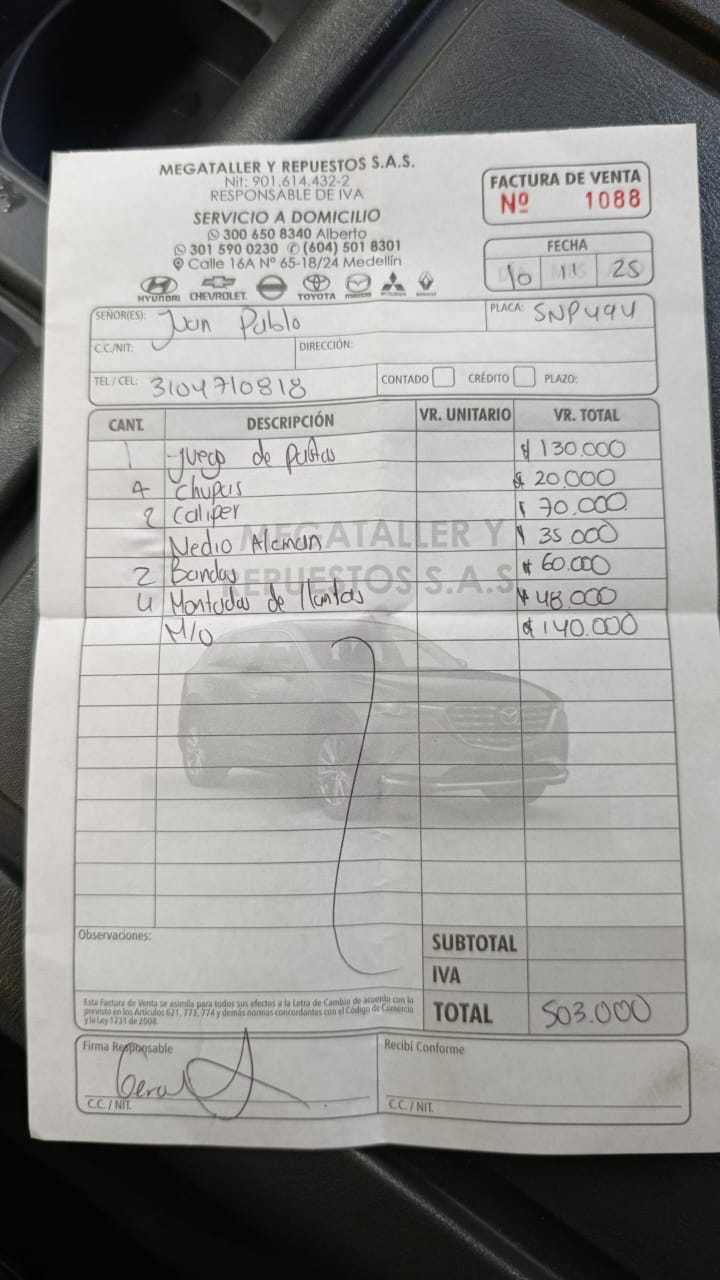 MEGATALLER Y REPUESTOS S.A.S.
Nit: 901.614.432-2
RESPONSABLE DE IVA
SERVICIO A DOMICILIO
300 650 8340 Alberto
301 590 0230 (604) 501 8301
Calle 16A Nº 65-18/24 Medellín
HYUNDAI CHEVROLET TOYOTA mazda MITSUBISHI RENAULT
FACTURA DE VENTA
Nº 1088
FECHA
10 11 25
SEÑOR(ES): Juan Pablo
PLACA: SNP494
C.C/NIT: DIRECCIÓN:
TEL / CEL: 3104710818 CONTADO CRÉDITO PLAZO:
CANT. DESCRIPCIÓN VR. UNITARIO VR. TOTAL
1 Juego de pastas $ 130.000
4 chupas $ 20.000
2 Caliper $ 70.000
Medio Aleman $ 35 000
2 Bandas $ 60.000
4 Montadas de llantas $ 48.000
M/O $ 140.000
MEGATALLER Y
REPUESTOS S.A.S
Observaciones:
SUBTOTAL
IVA
TOTAL 503.000
Esta Factura de Venta se asimila para todos sus efectos a la Letra de Cambio de acuerdo con lo
previsto en los Artículos 621, 773, 774 y demás normas concordantes con el Código de Comercio
y la Ley 1231 de 2008.
Firma Responsable
Recibí Conforme
C.C. / NIT.
C.C. / NIT.